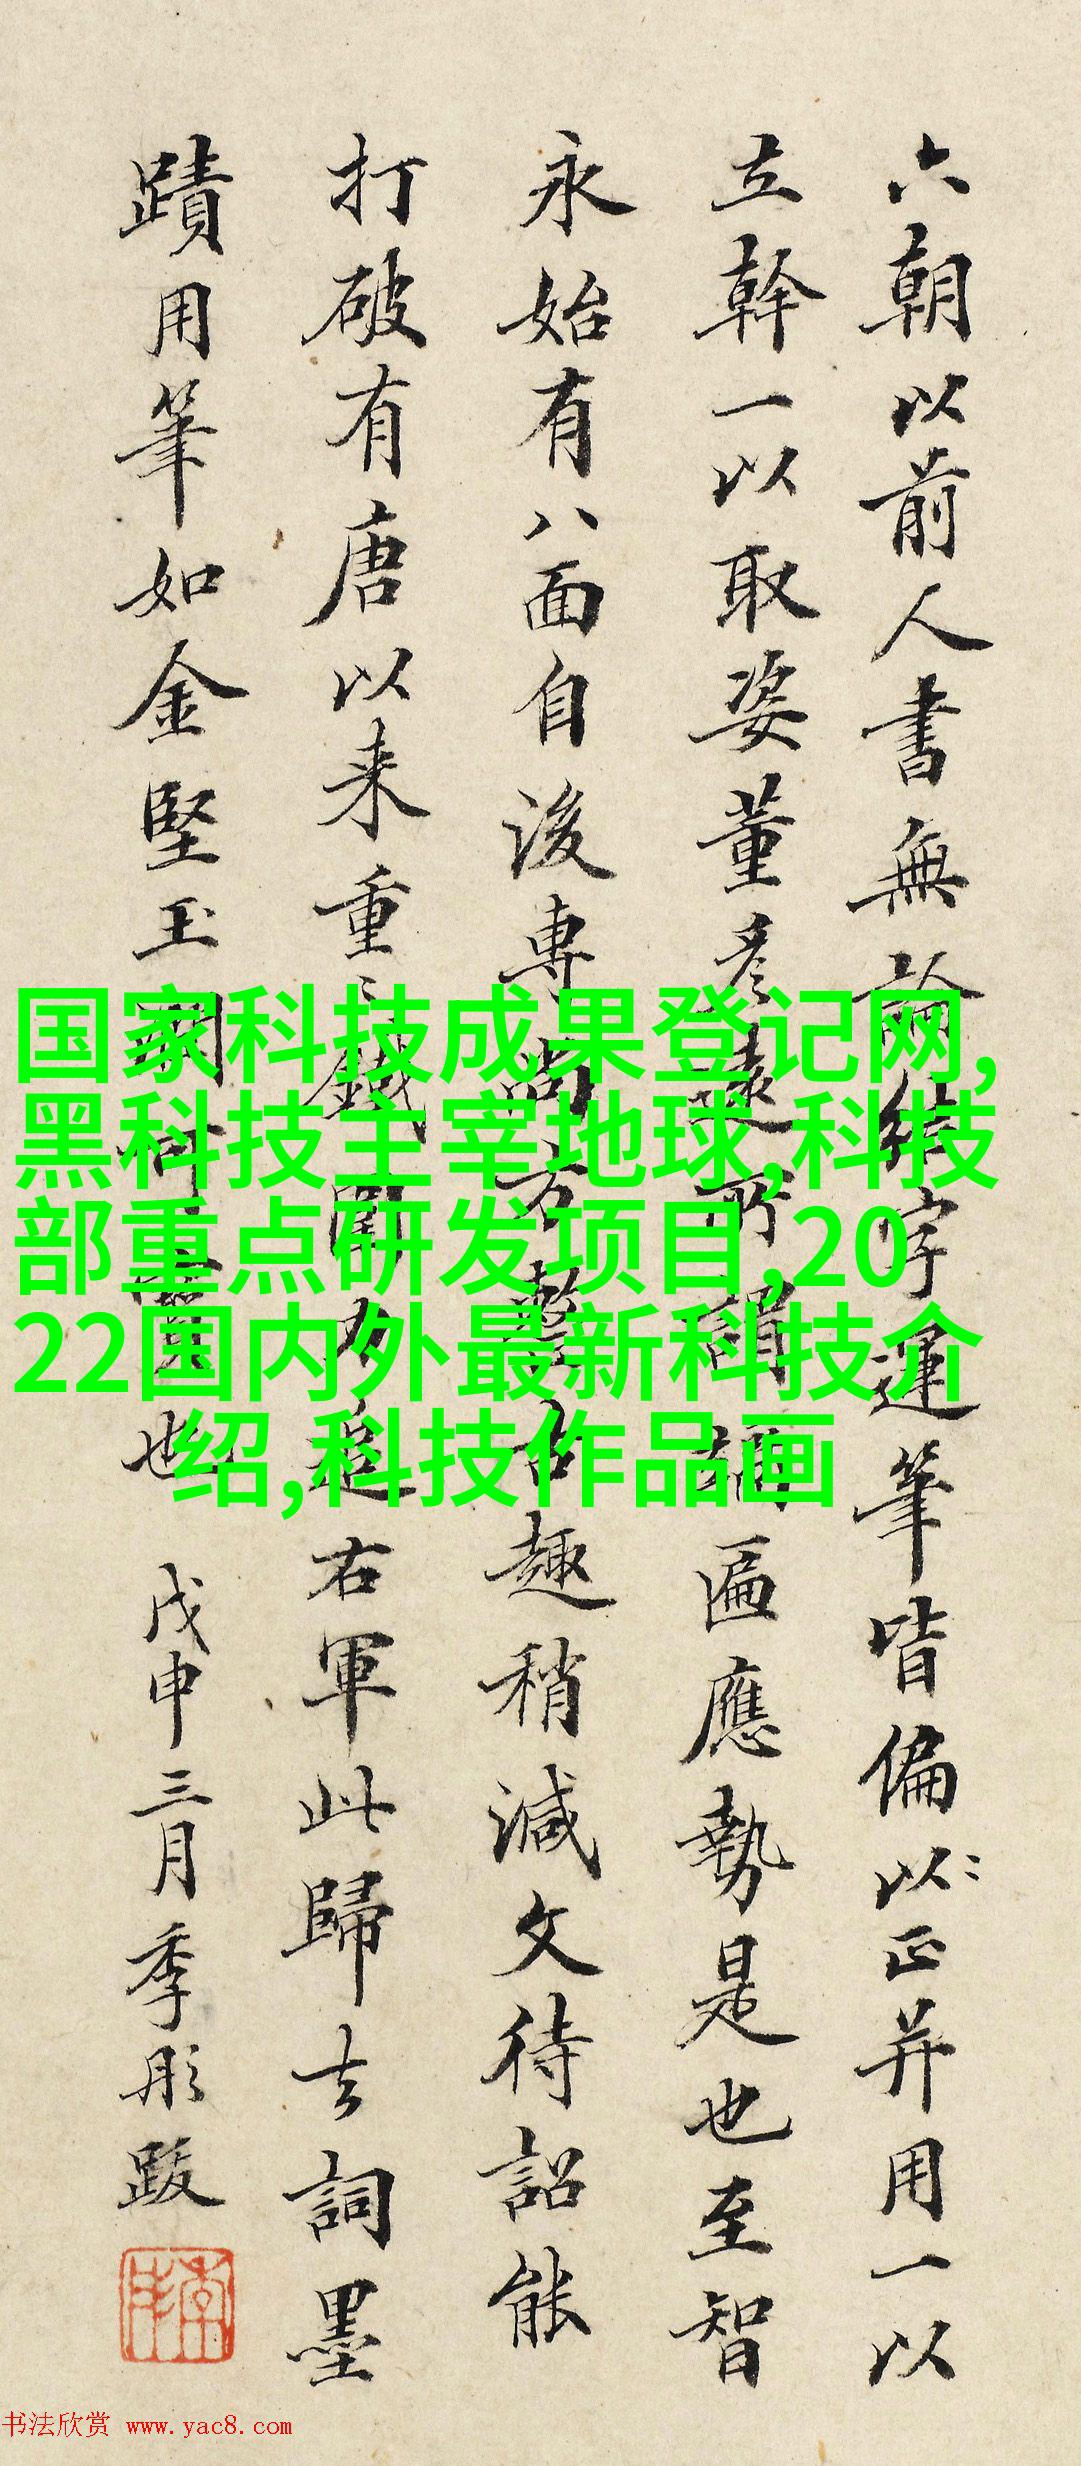 六朝以前人書無論結字運筆皆偏以正并用一以
立幹一以取姿董彥遠所謂匾應勢是也至智
永始有八面自後專尚方整古趣稍減文待詔能
打破有唐以来重〻鐵圍力追右軍此歸去詞墨
蹟用筆如金堅玉潤可寶也 戊申三月季彤跋
国家科技成果登记网,
黑科技主宰地球,科技
部重点研发项目,20
22国内外最新科技介
绍,科技作品画
书法欣赏 www.yac8.com